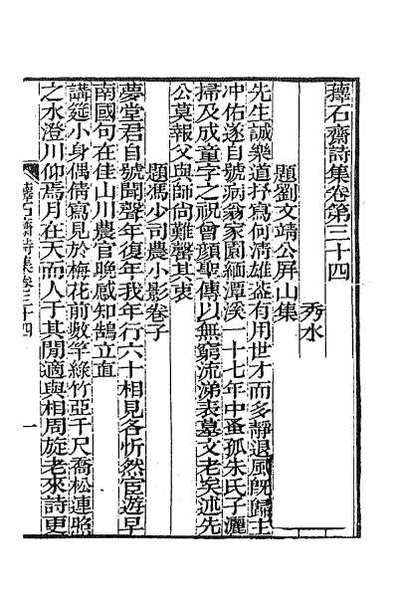 蘀石齋詩集卷第三十四
秀水
題劉文靖公屏山集
先生誠樂道抒寫何清雄益有用世才而多靜退風旣歸主
冲佑遂自號病翁家園緬潭溪一十七年中蚤孤朱氏子灑
掃及成童字之祝曾顏聖傳以無窮流涕表墓文老矣述先
公莫報父與師尙難罄其衷
題馮少司農小影卷子
夢堂君自號聞聲年復年我年行六十相見各忻然宦遊早
南國句在佳山川農官晚感知鵠立直
講筵小身偶倩寫見於梅花前數竿綠竹亞千尺喬松連照
之水澄川仰焉月在天而人于其閒適與相周旋老來詩更
蘀石齋詩集卷三十四
一